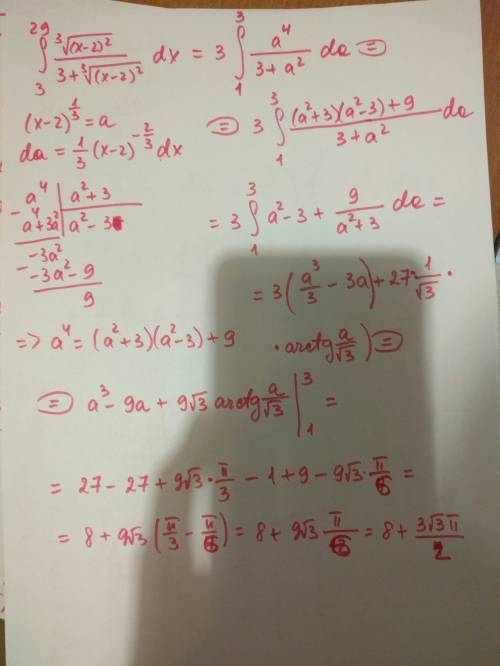 29
∫ ∛(x-2)² / (3+∛(x-2)²) dx = 3 ∫₁³ a⁴/(3+a²) da =
3
(x-2)^(1/3) = a
= 3 ∫₁³ ((a²+3)(a²-3)+9)/(3+a²) da
da = 1/3 (x-2)^(-2/3) dx
- a⁴ | a²+3
a⁴+3a² | a²-3
-3a²
- -3a²-9
9
= 3 ∫₁³ a²-3 + 9/(a²+3) da =
= 3(a³/3 - 3a) + 27·1/√3 ·
=> a⁴ = (a²+3)(a²-3)+9
· arctg a/√3) =
= a³-9a + 9√3 arctg a/√3 |₁³ =
= 27-27+9√3·π/3 -1+9-9√3·π/6 =
= 8+9√3(π/3 - π/6) = 8+9√3 π/6 = 8 + 3√3π/2